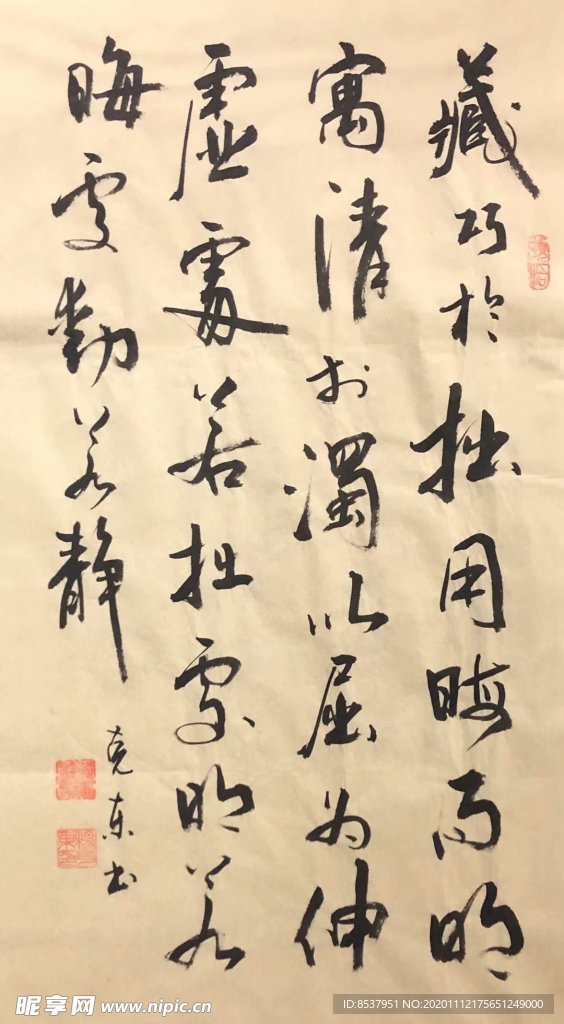 藏巧於拙用晦而明
寓清扵濁以屈为伸
虚處若拙處明若
晦處動若静
克东书
昵享网 www.nipic.cn
ID:8537951 NO:20201112175651249000